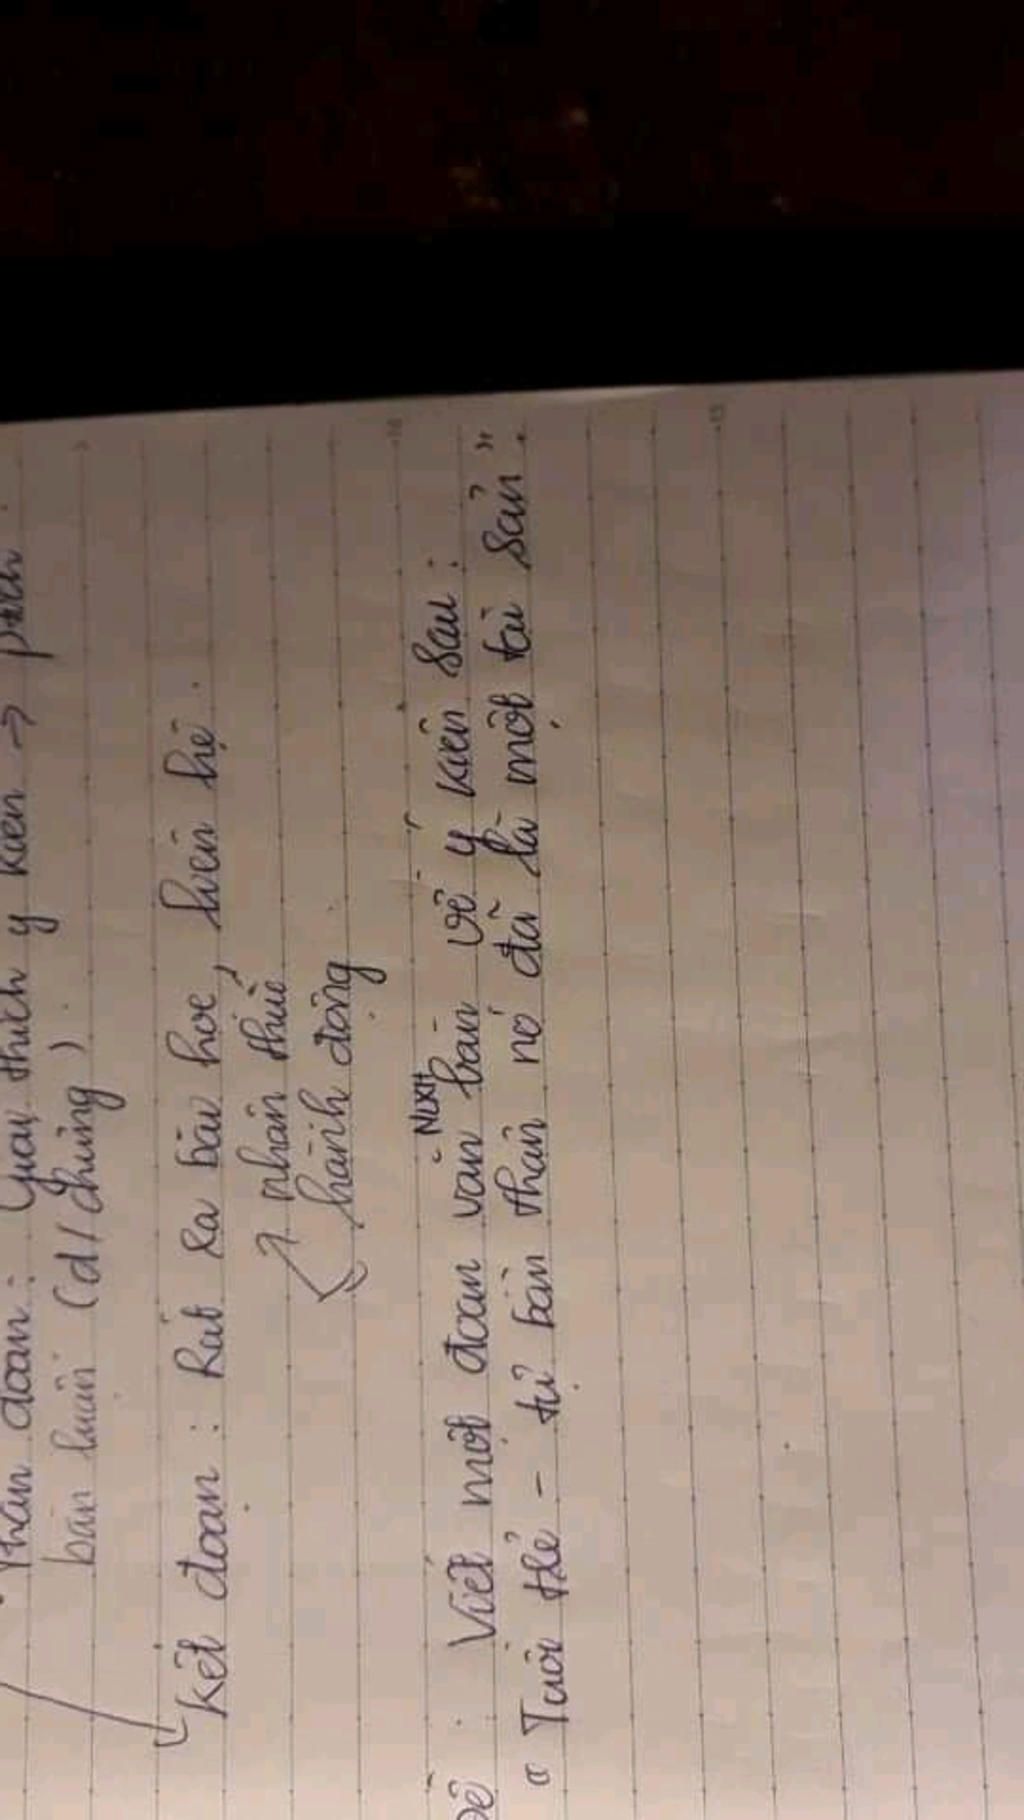 Thân đoạn: Giải thích ý kiến → phtích.
bàn luận (d/chứng).
Kết đoạn: Rút ra bài học, liên hệ.
nhận thức
hành động
Đề: Viết một đoạn văn NLXH bàn về ý kiến sau:
"Tuổi trẻ - tự bản thân nó đã là một tài sản".